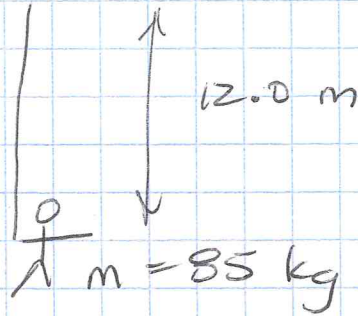 12.0 m
m = 85 kg